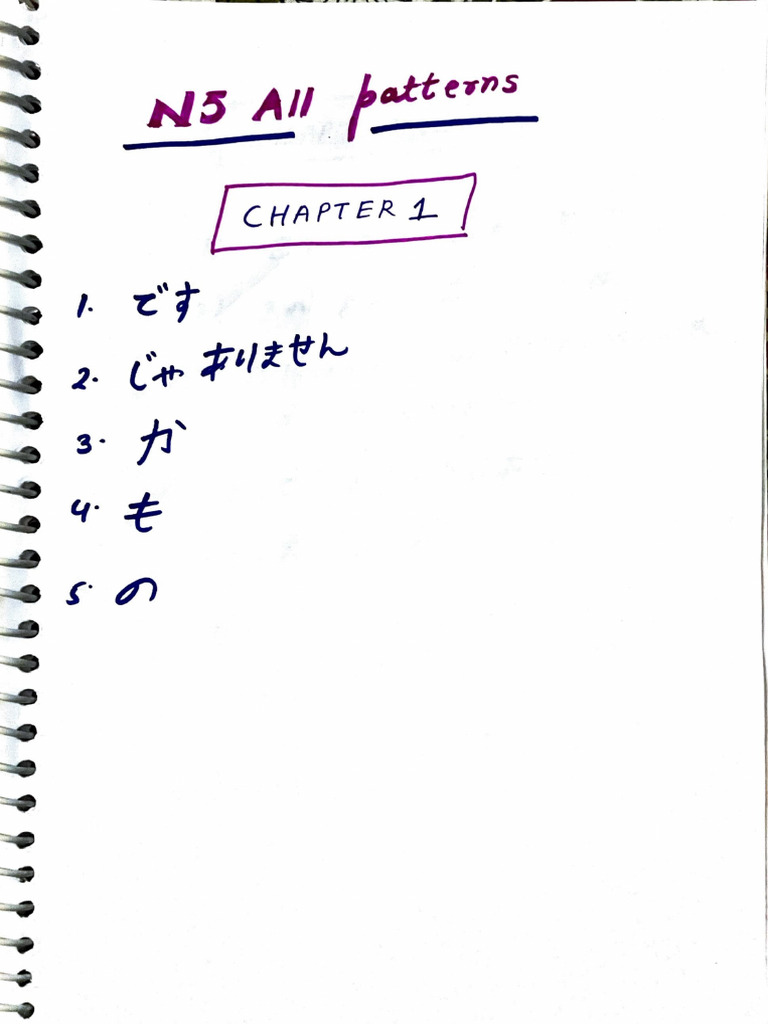 N5 All patterns
CHAPTER 1
1. です
2. じゃ ありません
3. か
4. も
5. の